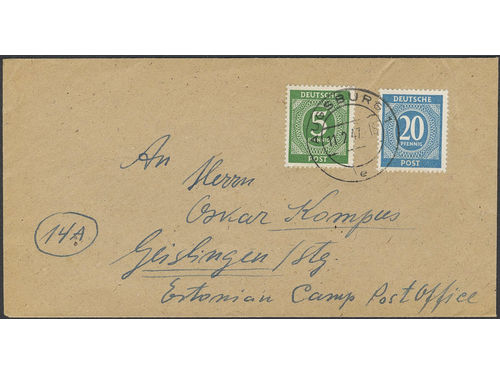 DEUTSCHE DEUTSCHE
5 20
PFENNIG PFENNIG
POST POST
SBURG
47
e
An
Herrn
Oskar Kompus
14A
Geislingen/Stg.
Estonian Camp Post Office